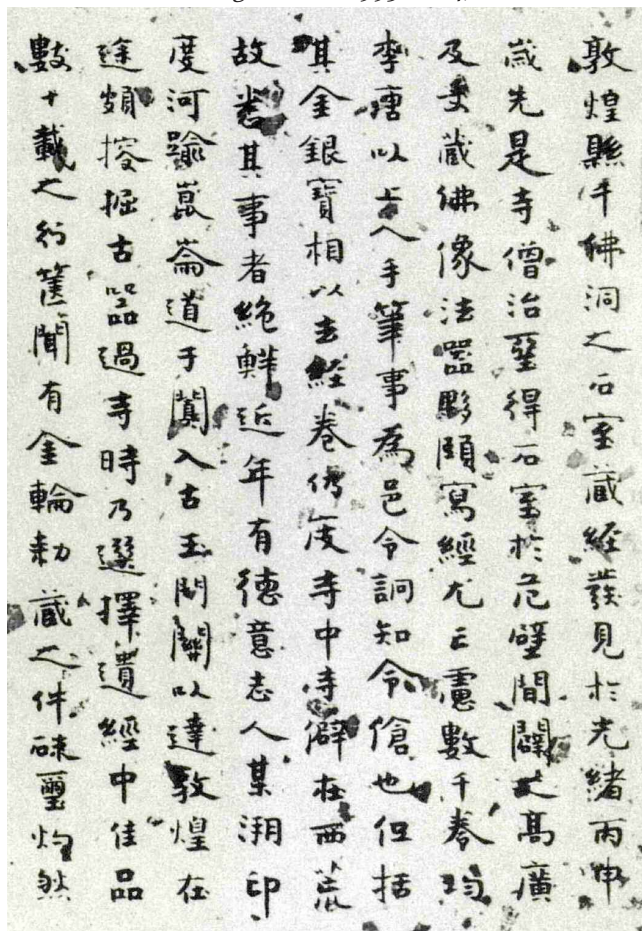 敦煌縣千佛洞之石室藏經發見於光緒丙申
歲先是寺僧治壁得石室於危壁間闢之高廣
及丈藏佛像法器夥頤寫經尤正慮數千卷均
李唐以上人手筆事為邑令詗知令傖也但括
其金銀寶相以去經卷仍庋寺中寺僻在西荒
故悉其事者絕鮮近年有德意志人某溯印
度河踰崑崙道于闐入古玉門關以達敦煌在
途頗搜掘古器過寺時乃選擇遺經中佳品
數十載之行篋聞有金輪勅藏之件硃璽灼然